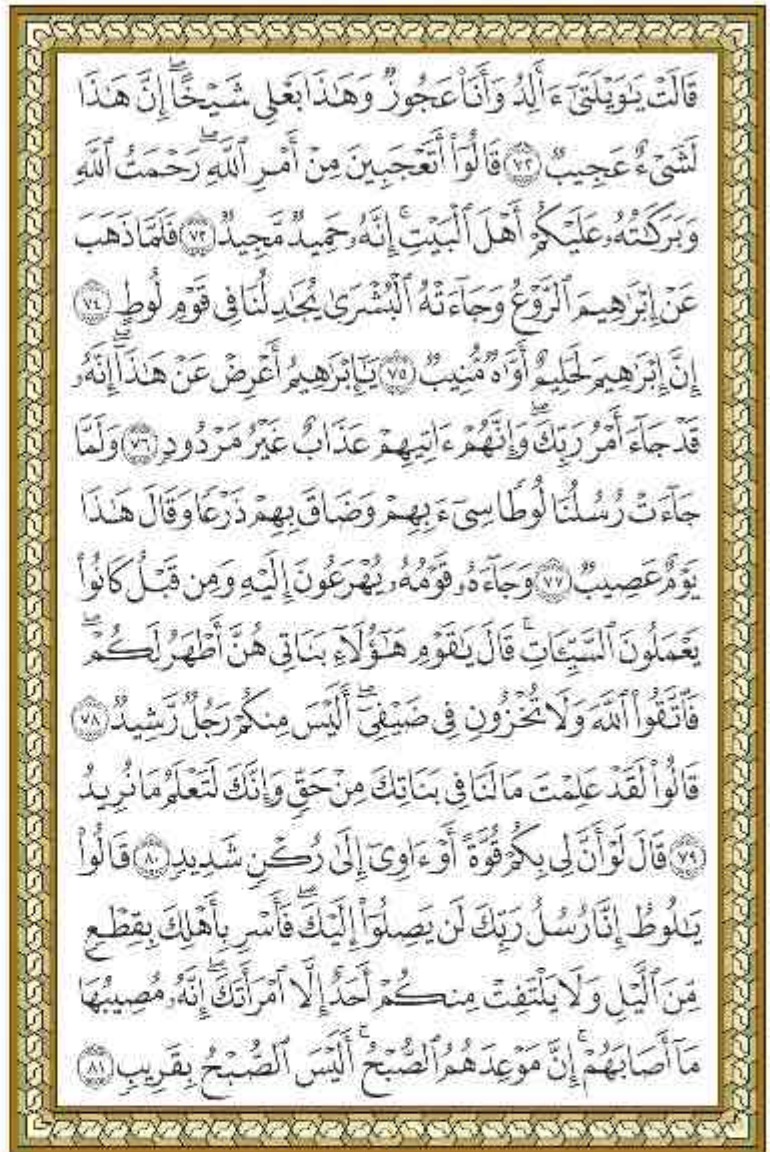 قَالَتْ يَـٰوَيْلَتَىٰٓ ءَأَلِدُ وَأَنَا۠ عَجُوزٌ وَهَـٰذَا بَعْلِى شَيْخًا ۖ إِنَّ هَـٰذَا
لَشَىْءٌ عَجِيبٌ ٧٢ قَالُوٓا۟ أَتَعْجَبِينَ مِنْ أَمْرِ ٱللَّهِ ۖ رَحْمَتُ ٱللَّهِ
وَبَرَكَـٰتُهُۥ عَلَيْكُمْ أَهْلَ ٱلْبَيْتِ ۚ إِنَّهُۥ حَمِيدٌ مَّجِيدٌ ٧٣ فَلَمَّا ذَهَبَ
عَنْ إِبْرَٰهِيمَ ٱلرَّوْعُ وَجَآءَتْهُ ٱلْبُشْرَىٰ يُجَـٰدِلُنَا فِى قَوْمِ لُوطٍ ٧٤
إِنَّ إِبْرَٰهِيمَ لَحَلِيمٌ أَوَّٰهٌ مُّنِيبٌ ٧٥ يَـٰٓإِبْرَٰهِيمُ أَعْرِضْ عَنْ هَـٰذَآ ۖ إِنَّهُۥ
قَدْ جَآءَ أَمْرُ رَبِّكَ ۖ وَإِنَّهُمْ ءَاتِيهِمْ عَذَابٌ غَيْرُ مَرْدُودٍ ٧٦ وَلَمَّا
جَآءَتْ رُسُلُنَا لُوطًا سِىٓءَ بِهِمْ وَضَاقَ بِهِمْ ذَرْعًا وَقَالَ هَـٰذَا
يَوْمٌ عَصِيبٌ ٧٧ وَجَآءَهُۥ قَوْمُهُۥ يُهْرَعُونَ إِلَيْهِ وَمِن قَبْلُ كَانُوا۟
يَعْمَلُونَ ٱلسَّيِّـَٔاتِ ۚ قَالَ يَـٰقَوْمِ هَـٰٓؤُلَآءِ بَنَاتِى هُنَّ أَطْهَرُ لَكُمْ ۖ
فَٱتَّقُوا۟ ٱللَّهَ وَلَا تُخْزُونِ فِى ضَيْفِىٓ ۖ أَلَيْسَ مِنكُمْ رَجُلٌ رَّشِيدٌ ٧٨
قَالُوا۟ لَقَدْ عَلِمْتَ مَا لَنَا فِى بَنَاتِكَ مِنْ حَقٍّ وَإِنَّكَ لَتَعْلَمُ مَا نُرِيدُ
٧٩ قَالَ لَوْ أَنَّ لِى بِكُمْ قُوَّةً أَوْ ءَاوِىٓ إِلَىٰ رُكْنٍ شَدِيدٍ ٨٠ قَالُوا۟
يَـٰلُوطُ إِنَّا رُسُلُ رَبِّكَ لَن يَصِلُوٓا۟ إِلَيْكَ ۖ فَأَسْرِ بِأَهْلِكَ بِقِطْعٍ
مِّنَ ٱلَّيْلِ وَلَا يَلْتَفِتْ مِنكُمْ أَحَدٌ إِلَّا ٱمْرَأَتَكَ ۖ إِنَّهُۥ مُصِيبُهَا
مَآ أَصَابَهُمْ ۚ إِنَّ مَوْعِدَهُمُ ٱلصُّبْحُ ۚ أَلَيْسَ ٱلصُّبْحُ بِقَرِيبٍ ٨١